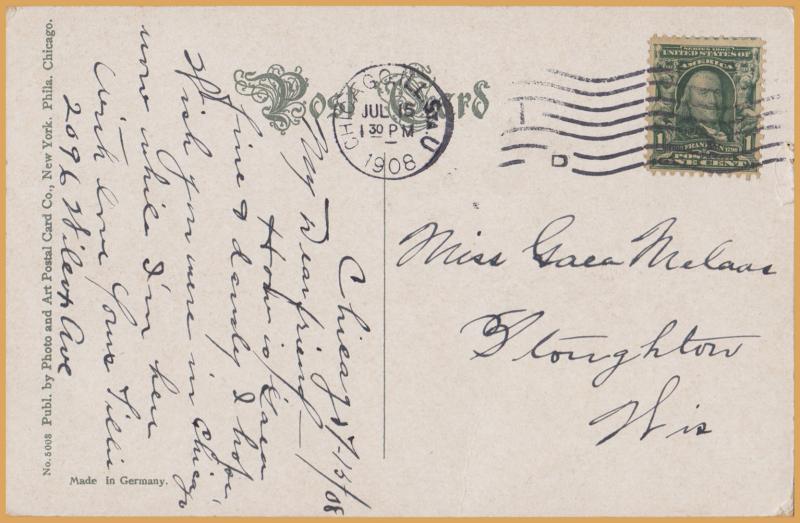 Post Card
CHICAGO, ILL. U
JUL 15
1 30 PM
1908
D
SERIES 1902
UNITED STATES OF
AMERICA
1 FRANKLIN 1
POSTAGE
ONE CENT
Chicago 7-15/08
My Dear friend
How is Gaea
fine & dandy I hope
Wish you were in Chicago
now while I'm here
With love Yours Tillie
2096 Wilcox Ave
Miss Gaea Melaas
Stoughton
Wis
No. 5008 Publ. by Photo and Art Postal Card Co., New York. Phila. Chicago.
Made in Germany.